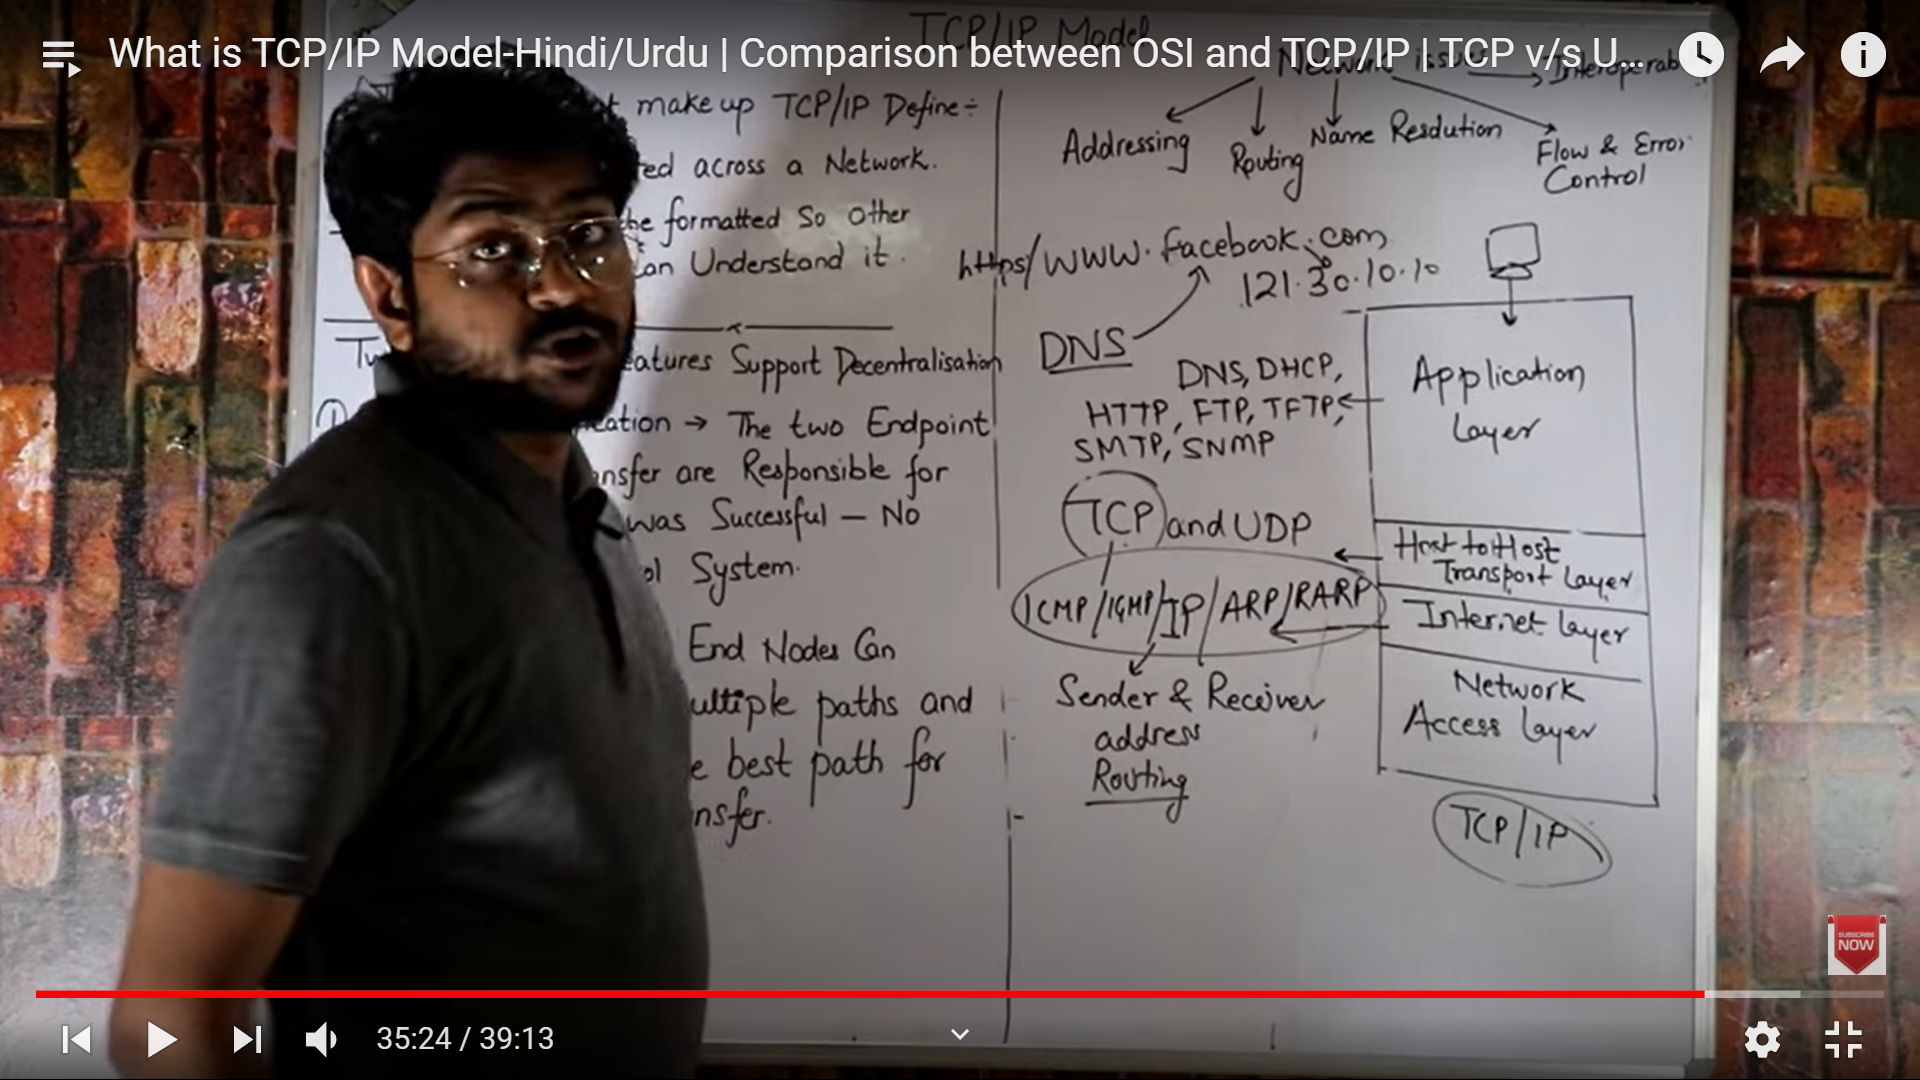 What is TCP/IP Model-Hindi/Urdu | Comparison between OSI and TCP/IP | TCP v/s U...
TCP/IP Model
make up TCP/IP Define ÷
ted across a Network.
be formatted So Other
Can Understand it.
eatures Support Decentralisation
ication → The two Endpoint
ansfer are Responsible for
was Successful — No
ol System.
End Nodes Can
ultiple paths and
e best path for
nsfer.
Network issue
Interoperab
Addressing
Routing
Name Resdution
Flow & Error
Control
https/WWW.facebook.com
121.30.10.10
DNS
DNS, DHCP,
HTTP, FTP, TFTP,
SMTP, SNMP
TCP and UDP
ICMP/IGMP/IP/ARP/RARP
Sender & Receiver
address
Routing
Application
Layer
Host to Host
Transport Layer
Internet Layer
Network
Access Layer
TCP/IP
SUBSCRIBE
NOW
35:24 / 39:13